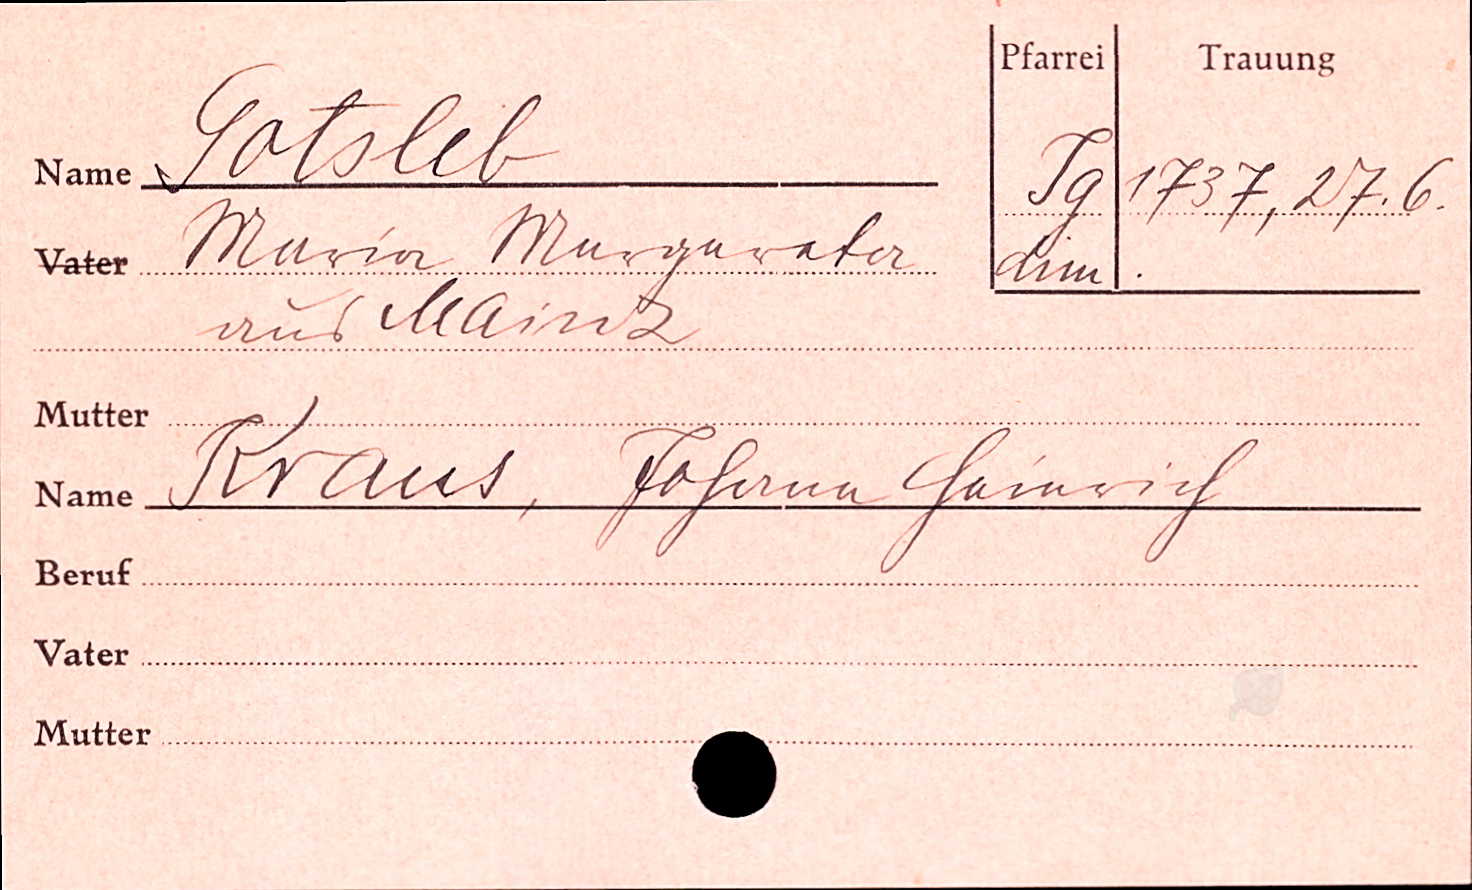 Pfarrei Trauung
Name Gotsleb
Jg 1737, 27.6.
Vater Maria Margareta
dim.
aus Mainz
Mutter
Name Kraus, Johann Heinrich
Beruf
Vater
Mutter